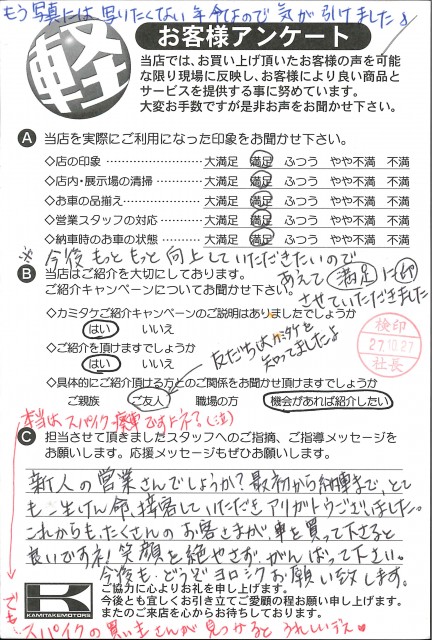 もう写真には写りたくない年令なので気が引けました♪
軽
お客様アンケート
当店では、お買い上げ頂いたお客様の声を可能
な限り現場に反映し、お客様により良い商品と
サービスを提供する事に努めています。
大変お手数ですが是非お声をお聞かせ下さい。
A 当店を実際にご利用になった印象をお聞かせ下さい。
◇店の印象 大満足 満足 ふつう やや不満 不満
◇店内・展示場の清掃 大満足 満足 ふつう やや不満 不満
◇お車の品揃え 大満足 満足 ふつう やや不満 不満
◇営業スタッフの対応 大満足 満足 ふつう やや不満 不満
◇納車時のお車の状態 大満足 満足 ふつう やや不満 不満
※今後もっともっと向上していただきたいので
あえて満足に印
させていただきました
B 当店はご紹介を大切にしております。
ご紹介キャンペーンについてお聞かせ下さい。
◇カミタケご紹介キャンペーンのご説明はありましたでしょうか
はい いいえ
◇ご紹介を頂けますでしょうか
はい いいえ
友だちはカミタケを
知ってましたよ
検印
27.10.27
社長
◇具体的にご紹介頂ける方とのご関係をお聞かせ頂けますでしょうか
ご親族 ご友人 職場の方 機会があれば紹介したい
本当はスパイク 廃車ですよネ?(泣)
C 担当させて頂きましたスタッフへのご指摘、ご指導メッセージを
お願いします。応援メッセージもぜひお願いします。
新人の営業さんでしょうか?最初から納車まで、とて
も一生けん命、接客していただきアリガトウございました。
これからも、たくさんのお客さまが車を買って下さると
良いですネ!笑顔を絶やさず、がんばって下さい。
今後も どうぞヨロシクお願い致します。
K
KAMITAKEMOTORS
ご協力に心よりお礼を申し上げます。
今後とも宜しくお引き立てご愛顧の程お願い申し上げます。
またのご来店を心からお待ちしております。
でも スパイクの買い主さんが見つかるとうれしいデス♥